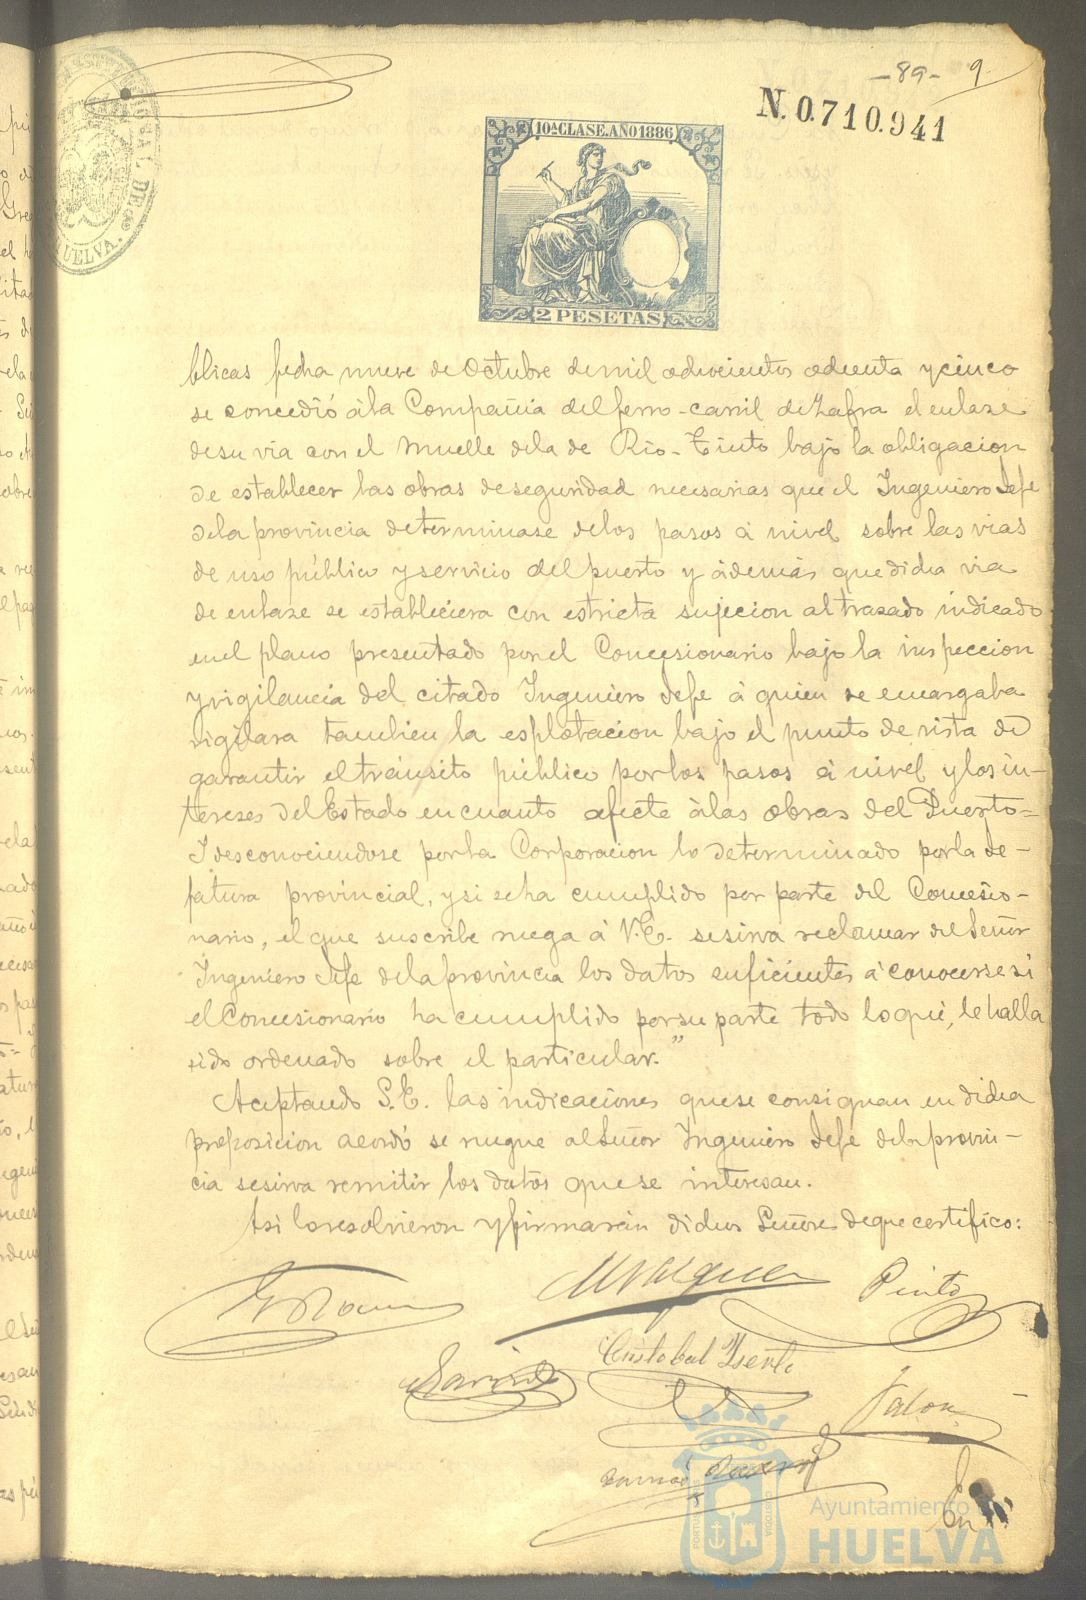 -89- 9
N. 0.710.941
10ª CLASE. AÑO 1886
2 PESETAS
HUELVA.
blicas fecha nueve de Octubre de mil ochocientos ochenta y cinco
se concedió á la Compañia del ferro-carril de Zafra el enlaze
de su via con el muelle de la de Rio-Tinto bajo la obligacion
de establecer las obras de seguridad necesarias que el Ingeniero Jefe
de la provincia determinase de los pasos á nivel sobre las vias
de uso público y servicio del puerto y además que dicha via
de enlaze se estableciera con estricta sujecion al trazado indicado
en el plano presentado por el Concesionario bajo la inspeccion
y vigilancia del citado Ingeniero Jefe á quien se encargaba
vigilara tambien la esplotacion bajo el punto de vista de
garantir el tránsito público por los pasos á nivel y los in-
tereses del Estado en cuanto afecte á las obras del Puerto=
I desconociendose por la Corporacion lo determinado por la Je-
fatura provincial, y si se ha cumplido por parte del Concesio-
nario, el que suscribe ruega á V.E. se sirva reclamar del Señor
Ingeniero Jefe de la provincia los datos suficientes á conocerse si
el Concesionario ha cumplido por su parte todo lo que, le halla
sido ordenado sobre el particular."
Aceptando S.E. las indicaciones que se consignan en dicha
proposicion acordó se ruegue al Señor Ingeniero Jefe de la provin-
cia se sirva remitir los datos que se interesan.
Asi lo resolvieron y firmarán dichos Señores de que certifico:
Pinto
Cristobal
Jalon
En
Ayuntamiento
HUELVA